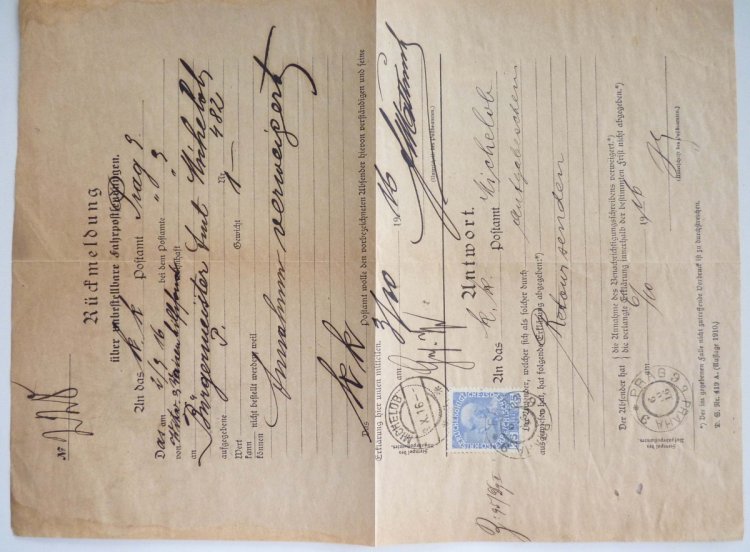 №
Rückmeldung
über unbestellbare Fahrpostsendungen.
An das k. k. Postamt Prag 3
Das am 2/9 16 bei dem Postamte " " 3
von
an Bürgermeister Amt Michelob
aufgegebene P. Nr. 482
Wert Gewicht 1 —
kann
können nicht bestellt werden weil
Annahme verweigert
Das k k Postamt wolle den vorbezeichneten Absender hiervon verständigen und seine
Erklärung hier unten mitteilen.
am 3/10 1916
MICHELOB
Stempel des
Aufgabepostamtes.
(Unterschrift des Postbeamten.)
Antwort.
An das k. k. Postamt Michelob
Der Absender, welcher sich als solcher durch Aufgabeschein
ausgewiesen hat, hat folgende Erklärung abgegeben:*)
Retour senden
Der Absender hat { die Annahme des Benachrichtigungsschreibens verweigert.*)
die verlangte Erklärung innerhalb der bestimmten Frist nicht abgegeben.*)
am 6/10 1916
PRAG 3
PRAHA 3
Stempel des
Aufgabepostamtes.
(Unterschrift des Postbeamten.)
*) Der im gegebenen Falle nicht zutreffende Vordruck ist zu durchstreichen.
D. S. Nr. 419 a. (Auflage 1910.)